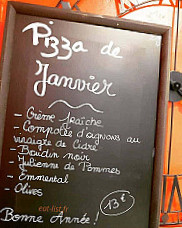 Pizza de
Janvier
- Crème fraîche
- Compotée d'oignons au
vinaigre de Cidre
- Boudin noir
- Julienne de Pommes
- Emmental
- Olives
13€
eat-list.fr
Bonne Année !